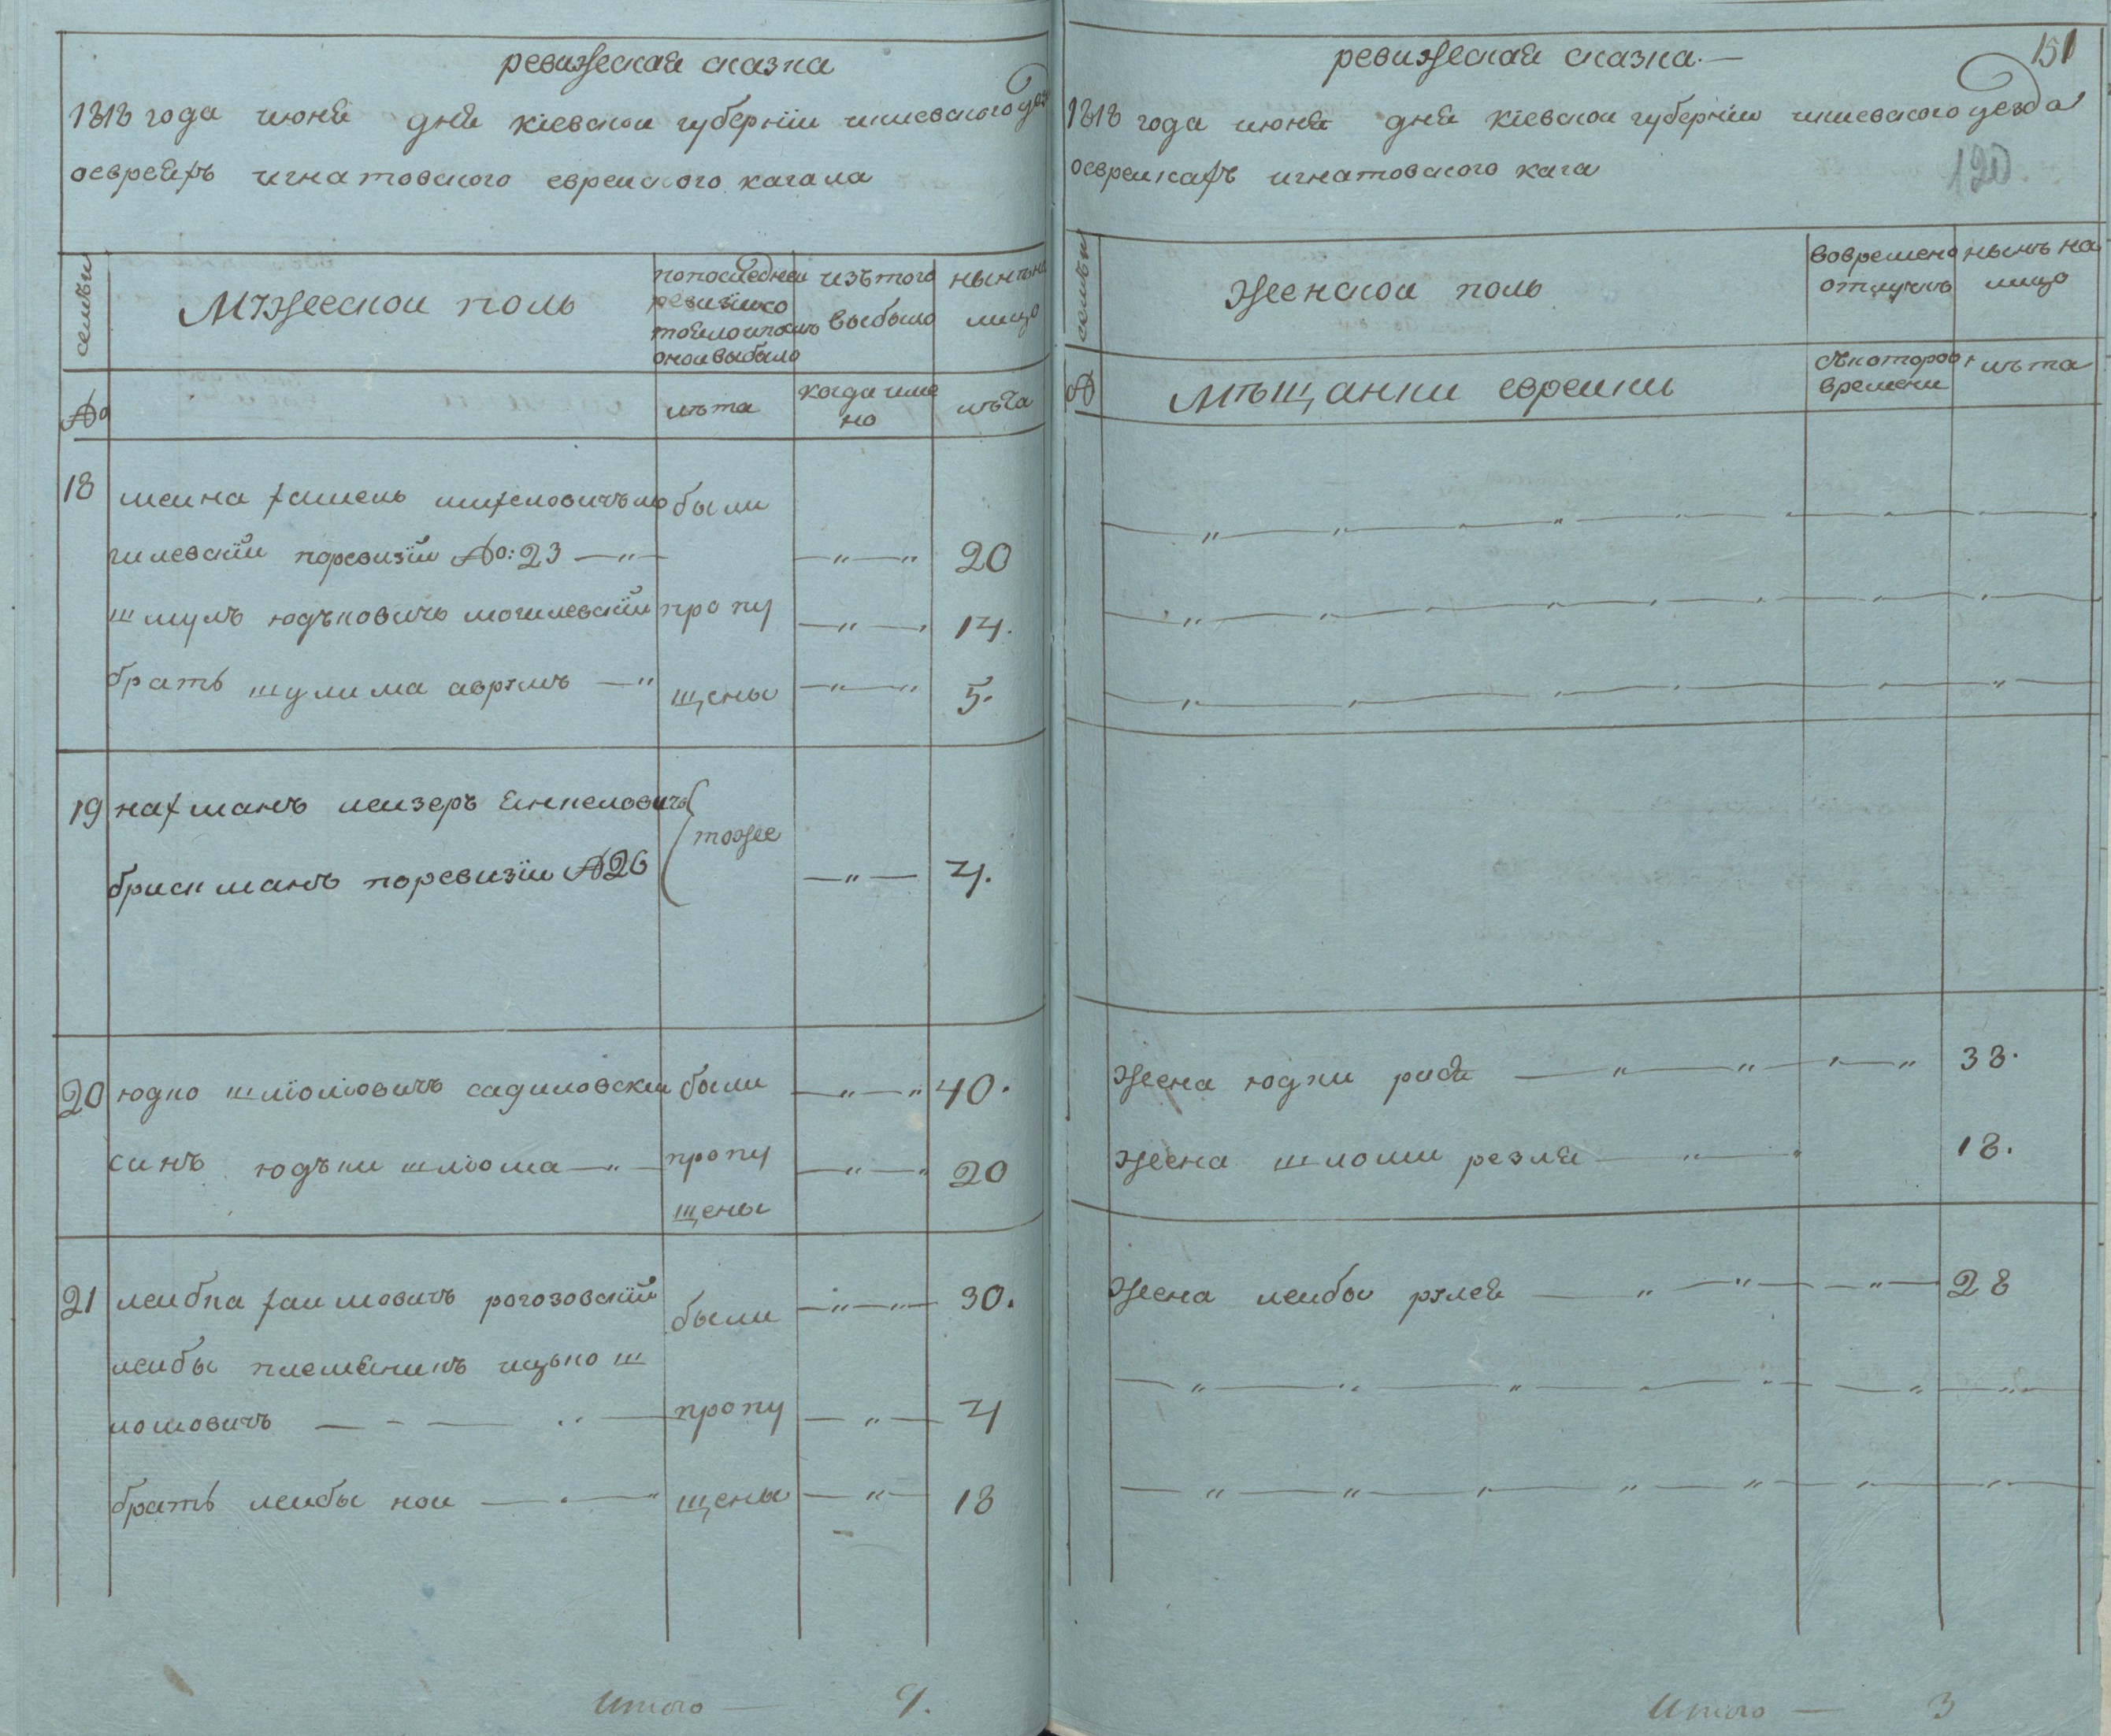 ревижеская сказка
1818 года июня дня кіевской губерніи киевского
оеврейхъ игнатовского еврейского кагала
семъи
Мужеской полъ
попоследней
ревизіи со
стояло и после
оной выбыло
изътого
выбыло
нынъ на
лицо
№
лъта
когда име
но
лъта
18
были
гилевскій поревизіи №: 23 — " —
— " — "
20
шмулъ юдъковичъ могилевскій
пропу
— " —
14.
братъ шулима аврумъ — "
щены
— " — "
5.
19 нахманъ лейзеръ Янкеловичъ
тоже
брискманъ поревизіи № 26
— " —
4.
20 юдко шліомовичъ садиловски
были
— " — "
40.
синъ юдъки шліома — " —
пропу
щены
— " — "
20
21 лейбка хаимовичъ рогозовскій
были
— " — " —
30.
лейбы племѣникъ ицько ш
ломовичъ — — —
пропу
— " —
4
братъ лейбы ной — —
щены
— " —
18
Итого — 9.
151
ревижеская сказка. —
1818 года июня дня кіевской губерніи киевского уезда
оеврейкахъ игнатовского кага
120
семъи
Женской полъ
вовремено
отлучкъ
нынъ на
лицо
№
Мъщанки еврейки
съкоторого
времени
лъта
жена юдки рися — " — " — " — "
38.
жена шломи резля — " —
18.
жена лейбы рухля — " — " — " —
28
Итого — 3